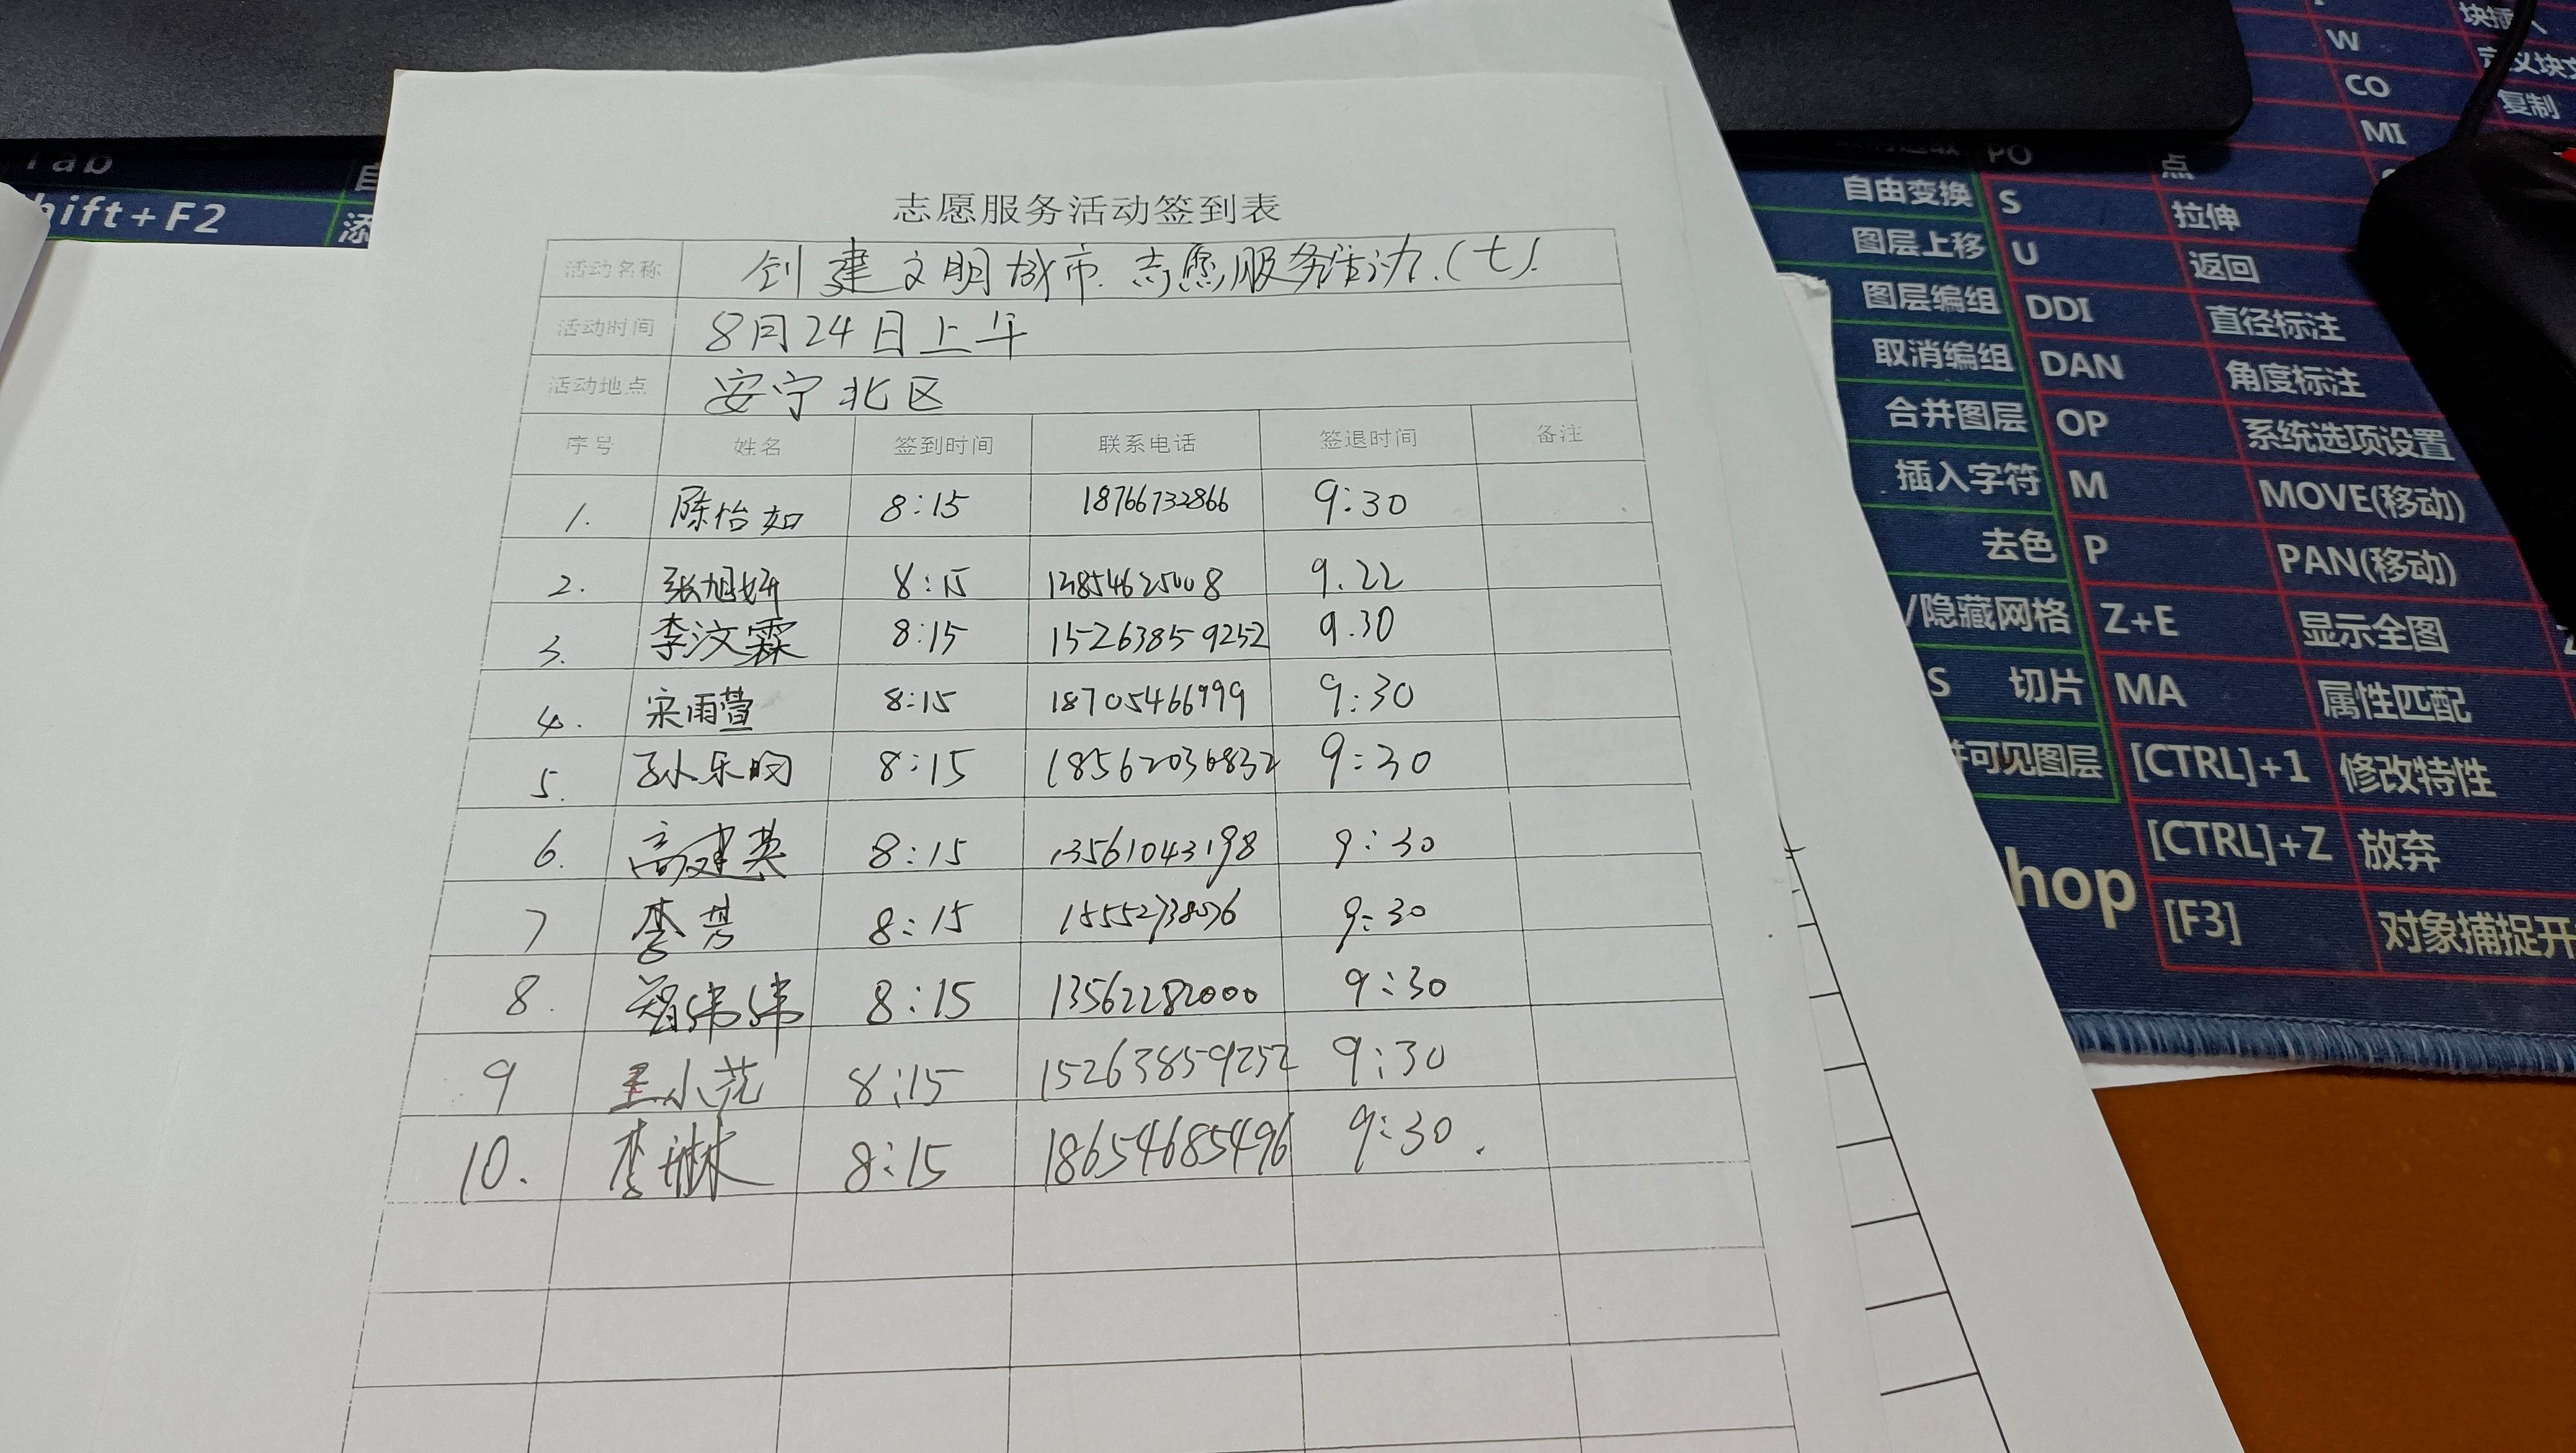 志愿服务活动签到表
活动名称 创建文明城市志愿服务活动.(七).
活动时间 8月24日上午
活动地点 安宁北区
序号 姓名 签到时间 联系电话 签退时间 备注
1. 陈怡如 8:15 18766732866 9:30
2. 张旭妍 8:15 9.22
3. 李汶霖 8:15 15263859252 9.30
4. 宋雨萱 8:15 18705466999 9:30
5. 孙乐昀 8:15 18562036832 9:30
6. 高建英 8:15 13561043198 9:30
7 李芳 8:15 9:30
8. 郑伟伟 8:15 13562282000 9:30
9 王小花 8:15 15263859252 9:30
10. 李琳 8:15 18654685496 9:30.
Tab
hift+F2 添
块插入
W 定义块文
CO 复制
MI
PO 点
自由变换 S 拉伸
图层上移 U 返回
图层编组 DDI 直径标注
取消编组 DAN 角度标注
合并图层 OP 系统选项设置
插入字符 M MOVE(移动)
去色 P PAN(移动)
/隐藏网格 Z+E 显示全图
S 切片 MA 属性匹配
并可见图层 [CTRL]+1 修改特性
[CTRL]+Z 放弃
hop [F3] 对象捕捉开